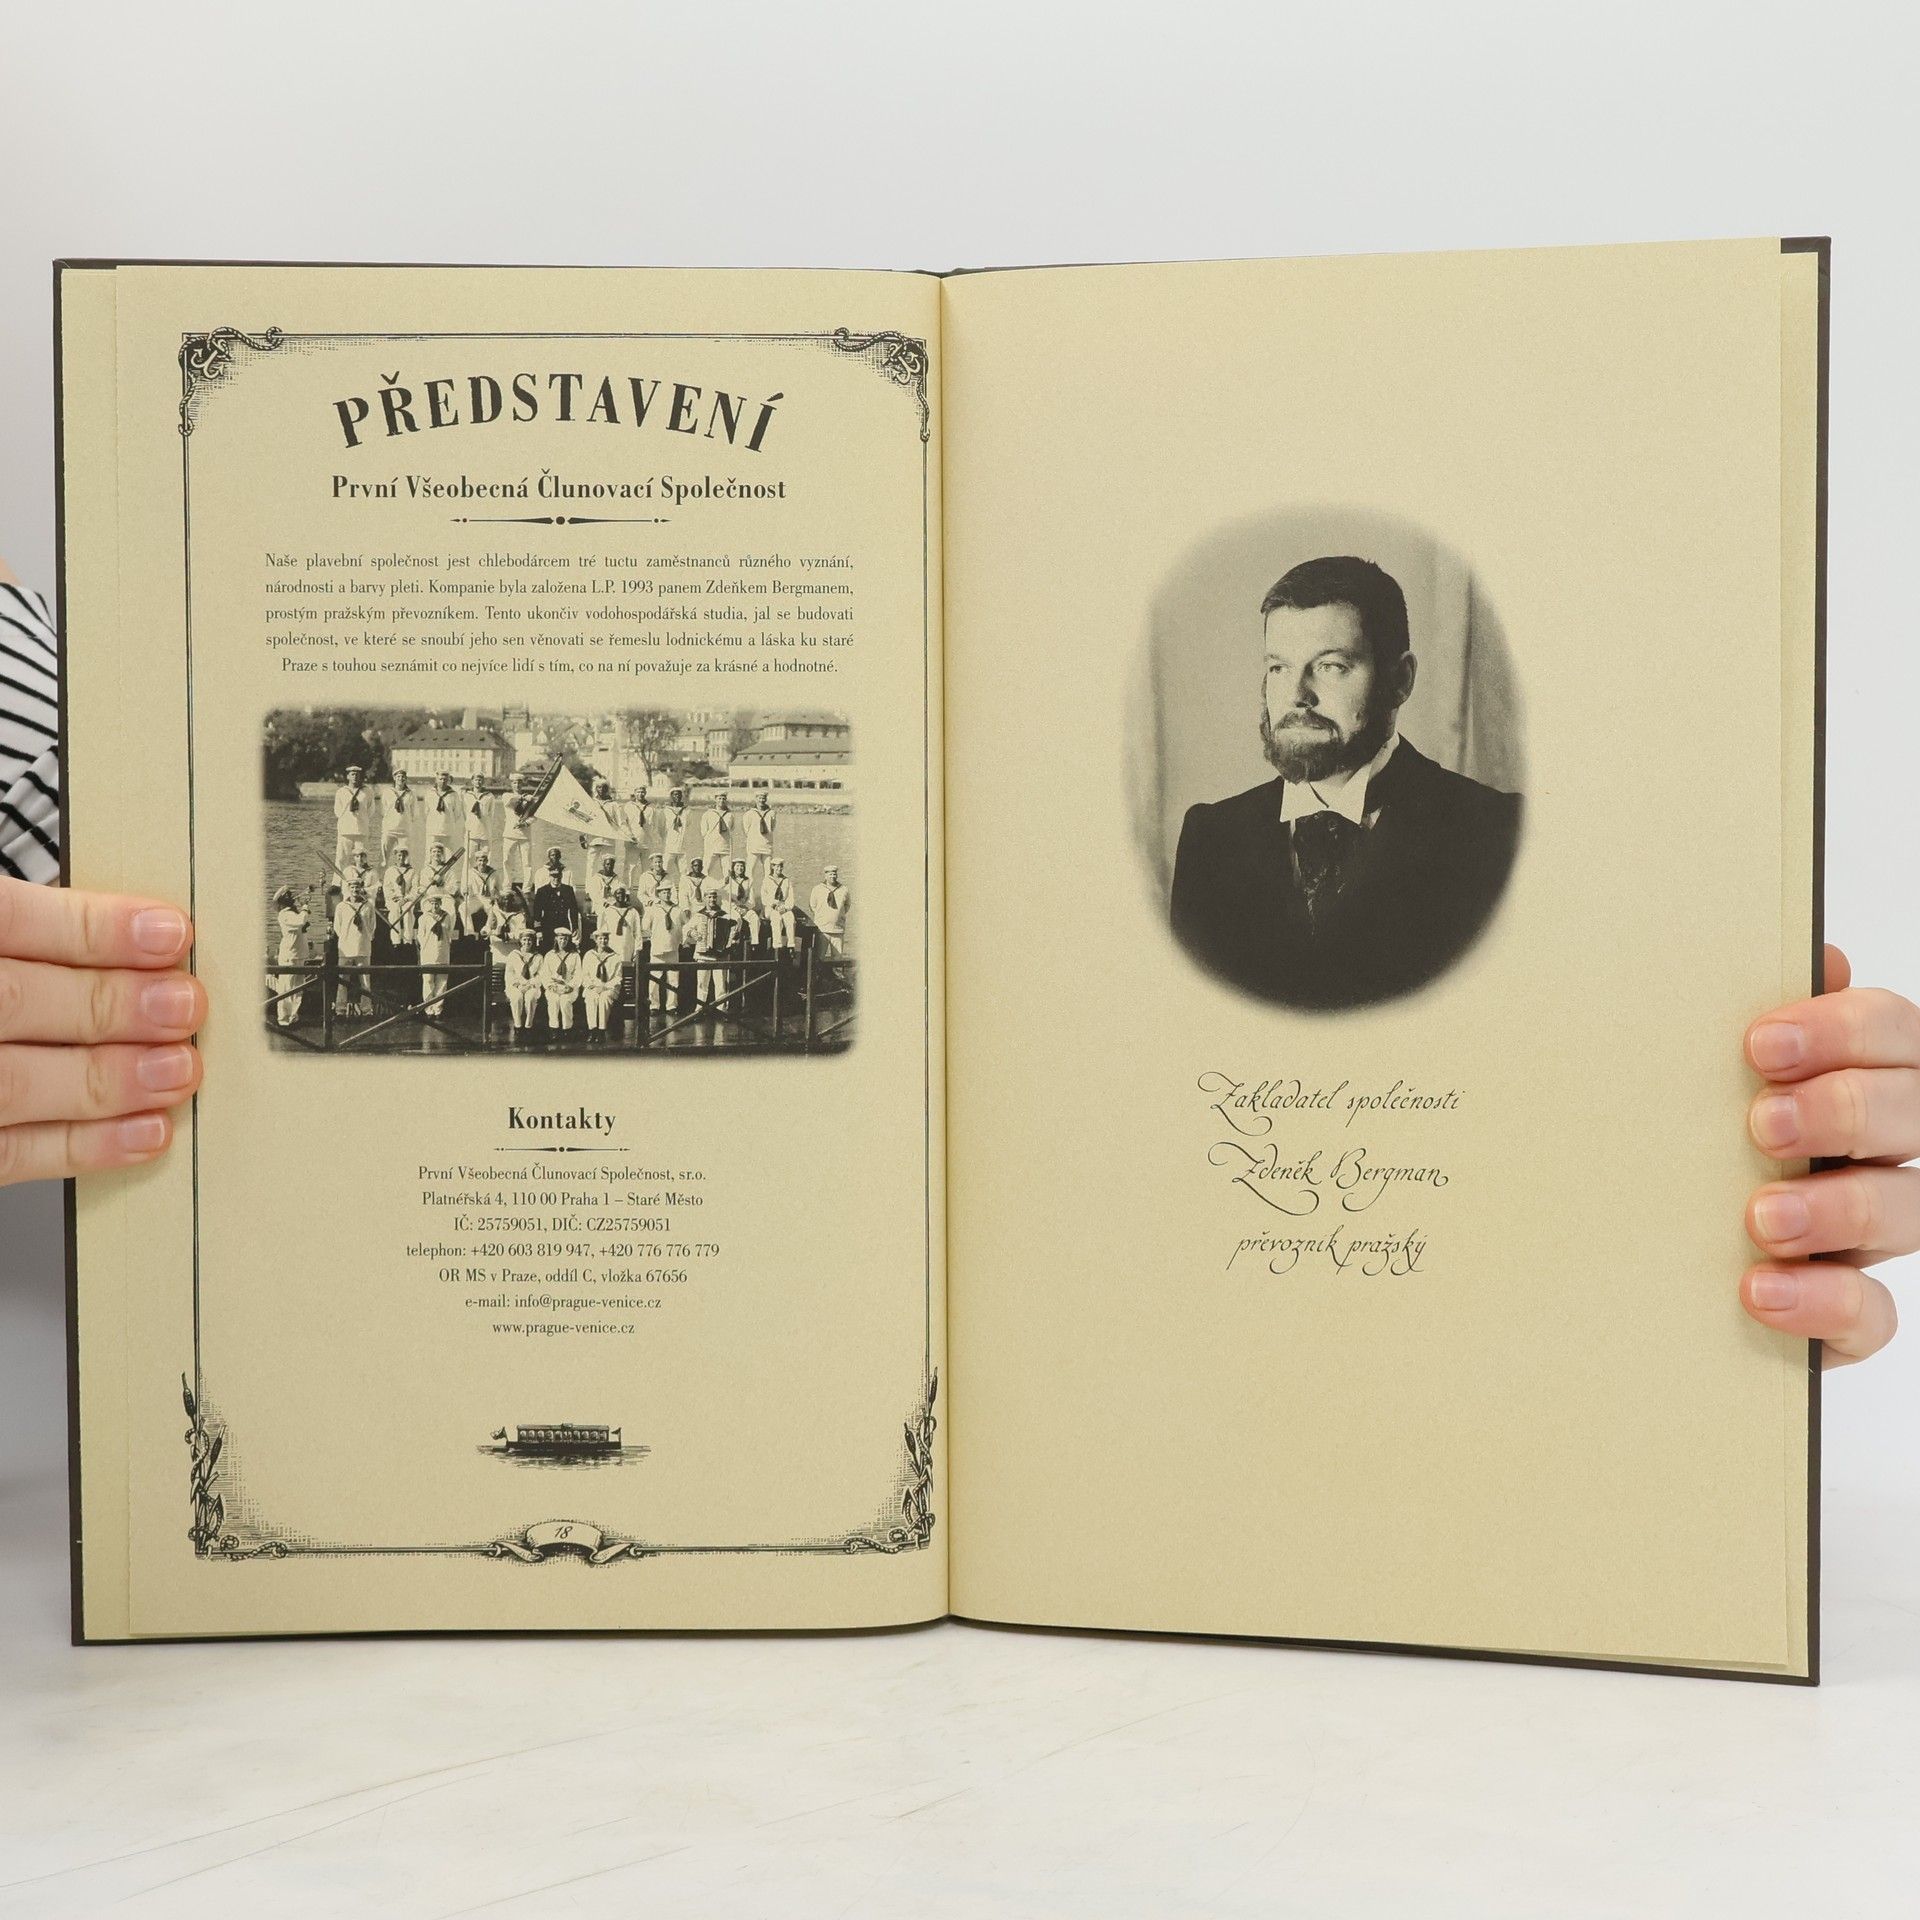 PŘEDSTAVENÍ
První Všeobecná Člunovací Společnost
Naše plavební společnost jest chlebodárcem tré tuctu zaměstnanců různého vyznání,
národnosti a barvy pleti. Kompanie byla založena L.P. 1993 panem Zdeňkem Bergmanem,
prostým pražským převozníkem. Tento ukončiv vodohospodářská studia, jal se budovati
společnost, ve které se snoubí jeho sen věnovati se řemeslu lodnickému a láska ku staré
Praze s touhou seznámit co nejvíce lidí s tím, co na ní považuje za krásné a hodnotné.
Kontakty
První Všeobecná Člunovací Společnost, sr.o.
Platnéřská 4, 110 00 Praha 1 – Staré Město
IČ: 25759051, DIČ: CZ25759051
telephon: +420 603 819 947, +420 776 776 779
OR MS v Praze, oddíl C, vložka 67656
e-mail: info@prague-venice.cz
www.prague-venice.cz
18
Zakladatel společnosti
Zdeněk Bergman
převozník pražský